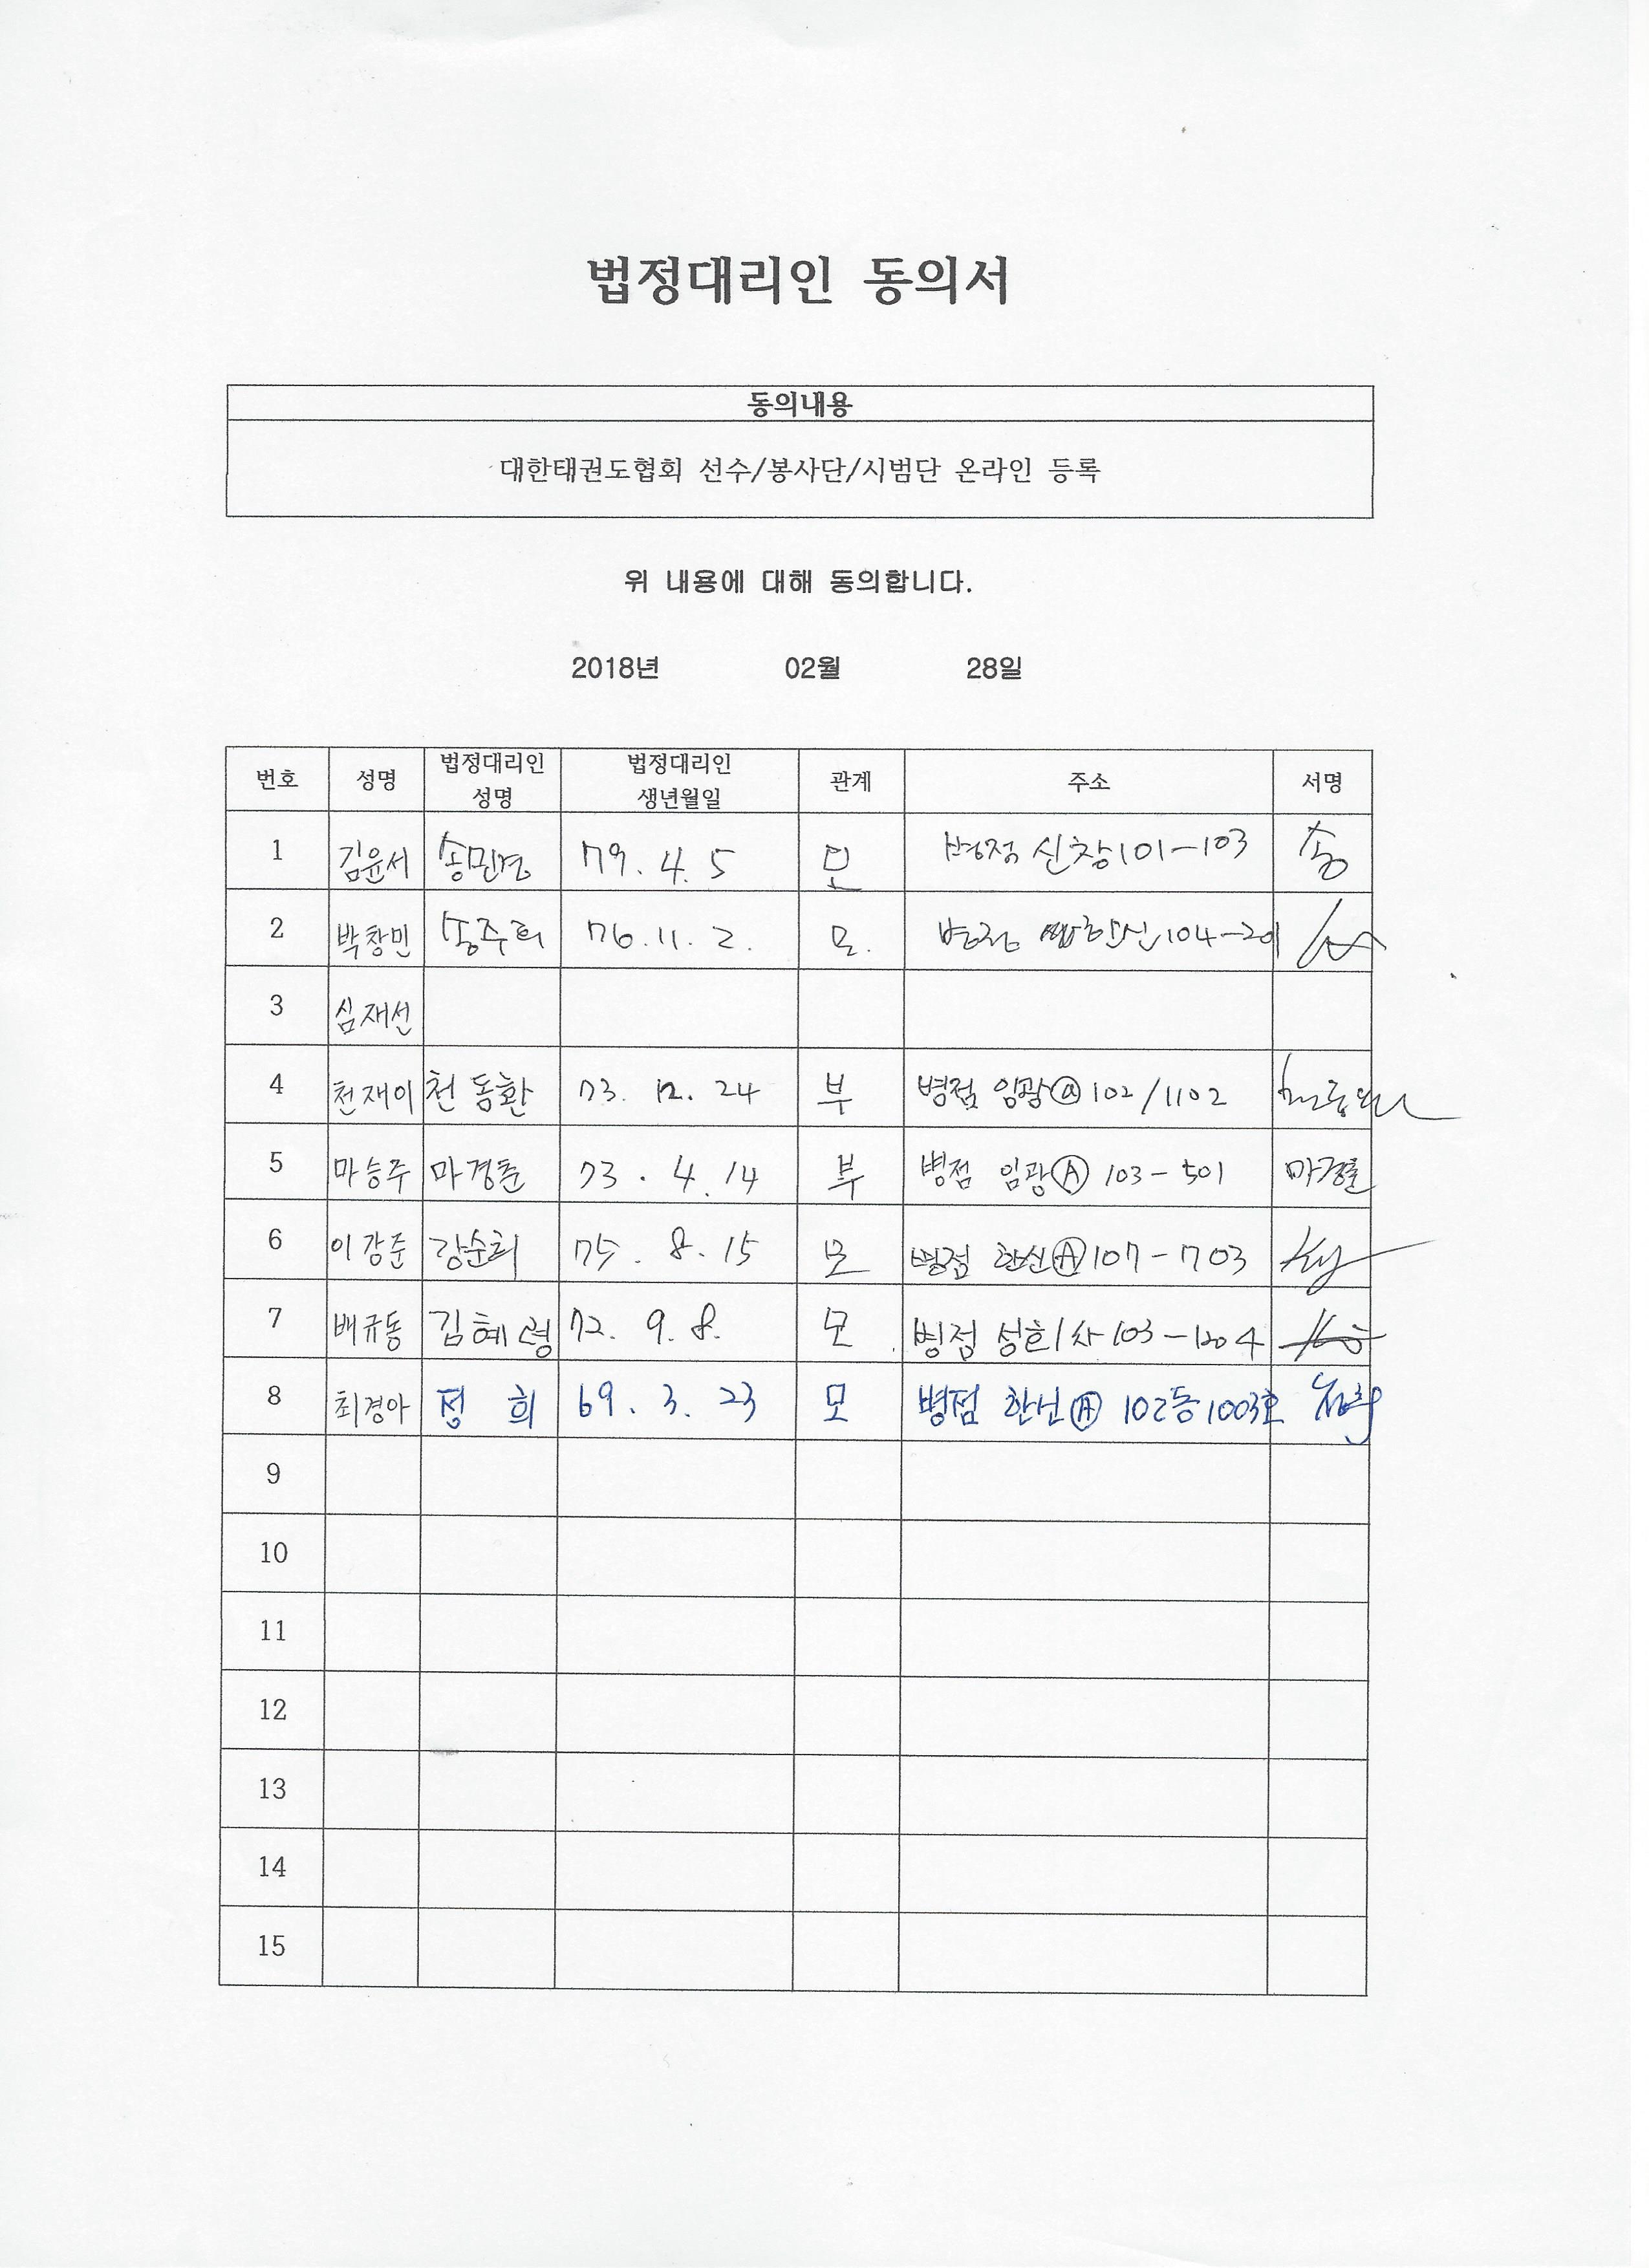 법정대리인 동의서
동의내용
대한태권도협회 선수/봉사단/시범단 온라인 등록
위 내용에 대해 동의합니다.
2018년 02월 28일
번호 성명 법정대리인 성명 법정대리인 생년월일 관계 주소 서명
1 김윤서 송민경 79. 4. 5 모 병점 신창 101-103 송
2 박창민 송주희 76. 11. 2. 모. 병점 한신 104-201
3 심재선
4 천재이 천동환 73. 12. 24 부 병점 임광ⓐ 102/1102
5 마승주 마경춘 73. 4. 14 부 병점 임광Ⓐ 103-501 마경춘
6 이강준 강순희 75. 8. 15 모 병점 한신Ⓐ 107-703
7 배규동 김혜령 72. 9. 8. 모 병점 성호1차 103-1204
8 최경아 정 희 69. 3. 23 모 병점 한신Ⓐ 102동 1003호
9
10
11
12
13
14
15